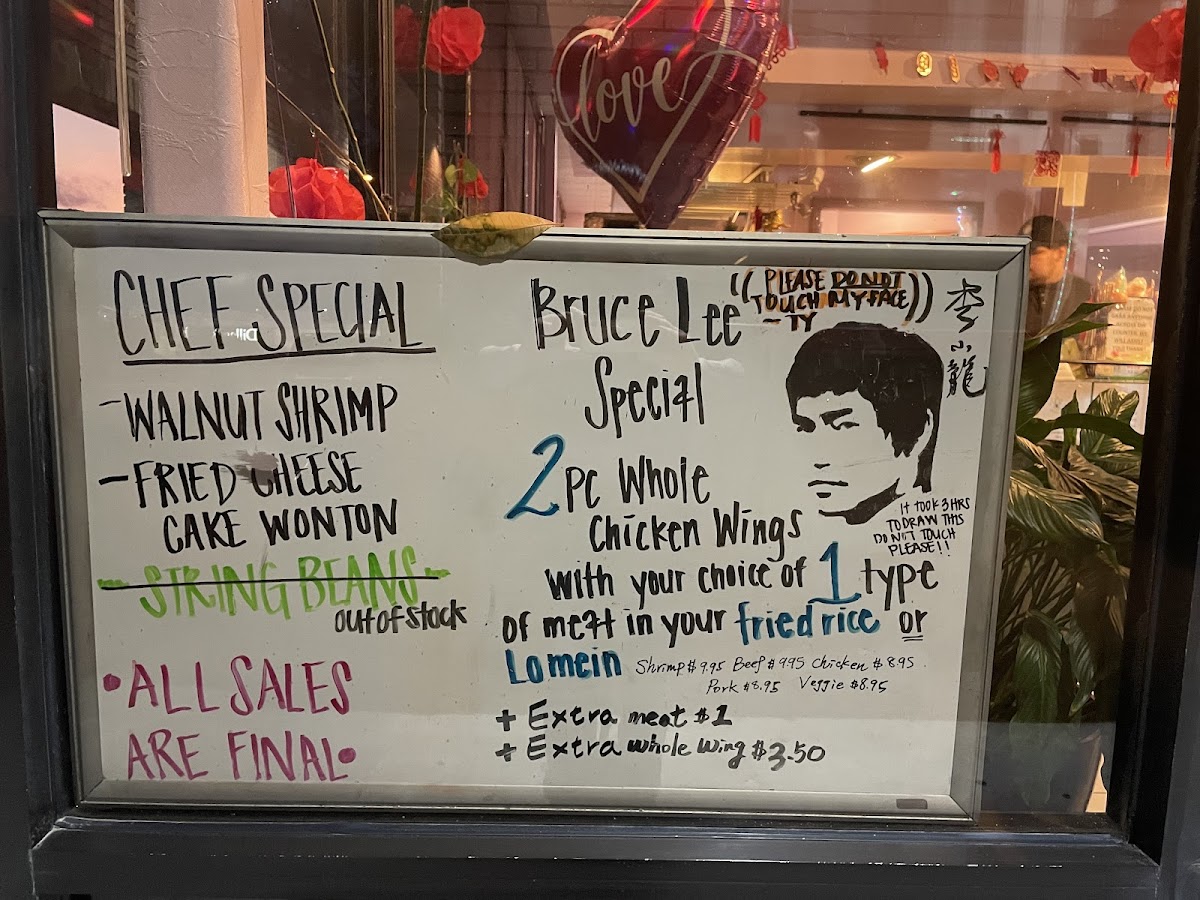 love
CHEF SPECIAL
- WALNUT SHRIMP
- FRIED CHEESE
CAKE WONTON
- STRING BEANS -
out of stock
• ALL SALES
ARE FINAL •
Bruce Lee
Special
2 pc Whole
Chicken Wings
with your choice of 1 type
of meat in your fried rice or
Lomein Shrimp $9.95 Beef $9.95 Chicken $8.95
Pork $8.95 Veggie $8.95
+ Extra meat $1
+ Extra whole wing $3.50
(( PLEASE DO NOT
TOUCH MY FACE ))
- TY
李
小
龍
IT TOOK 3 HRS
TO DRAW THIS
DON'T TOUCH
PLEASE!!